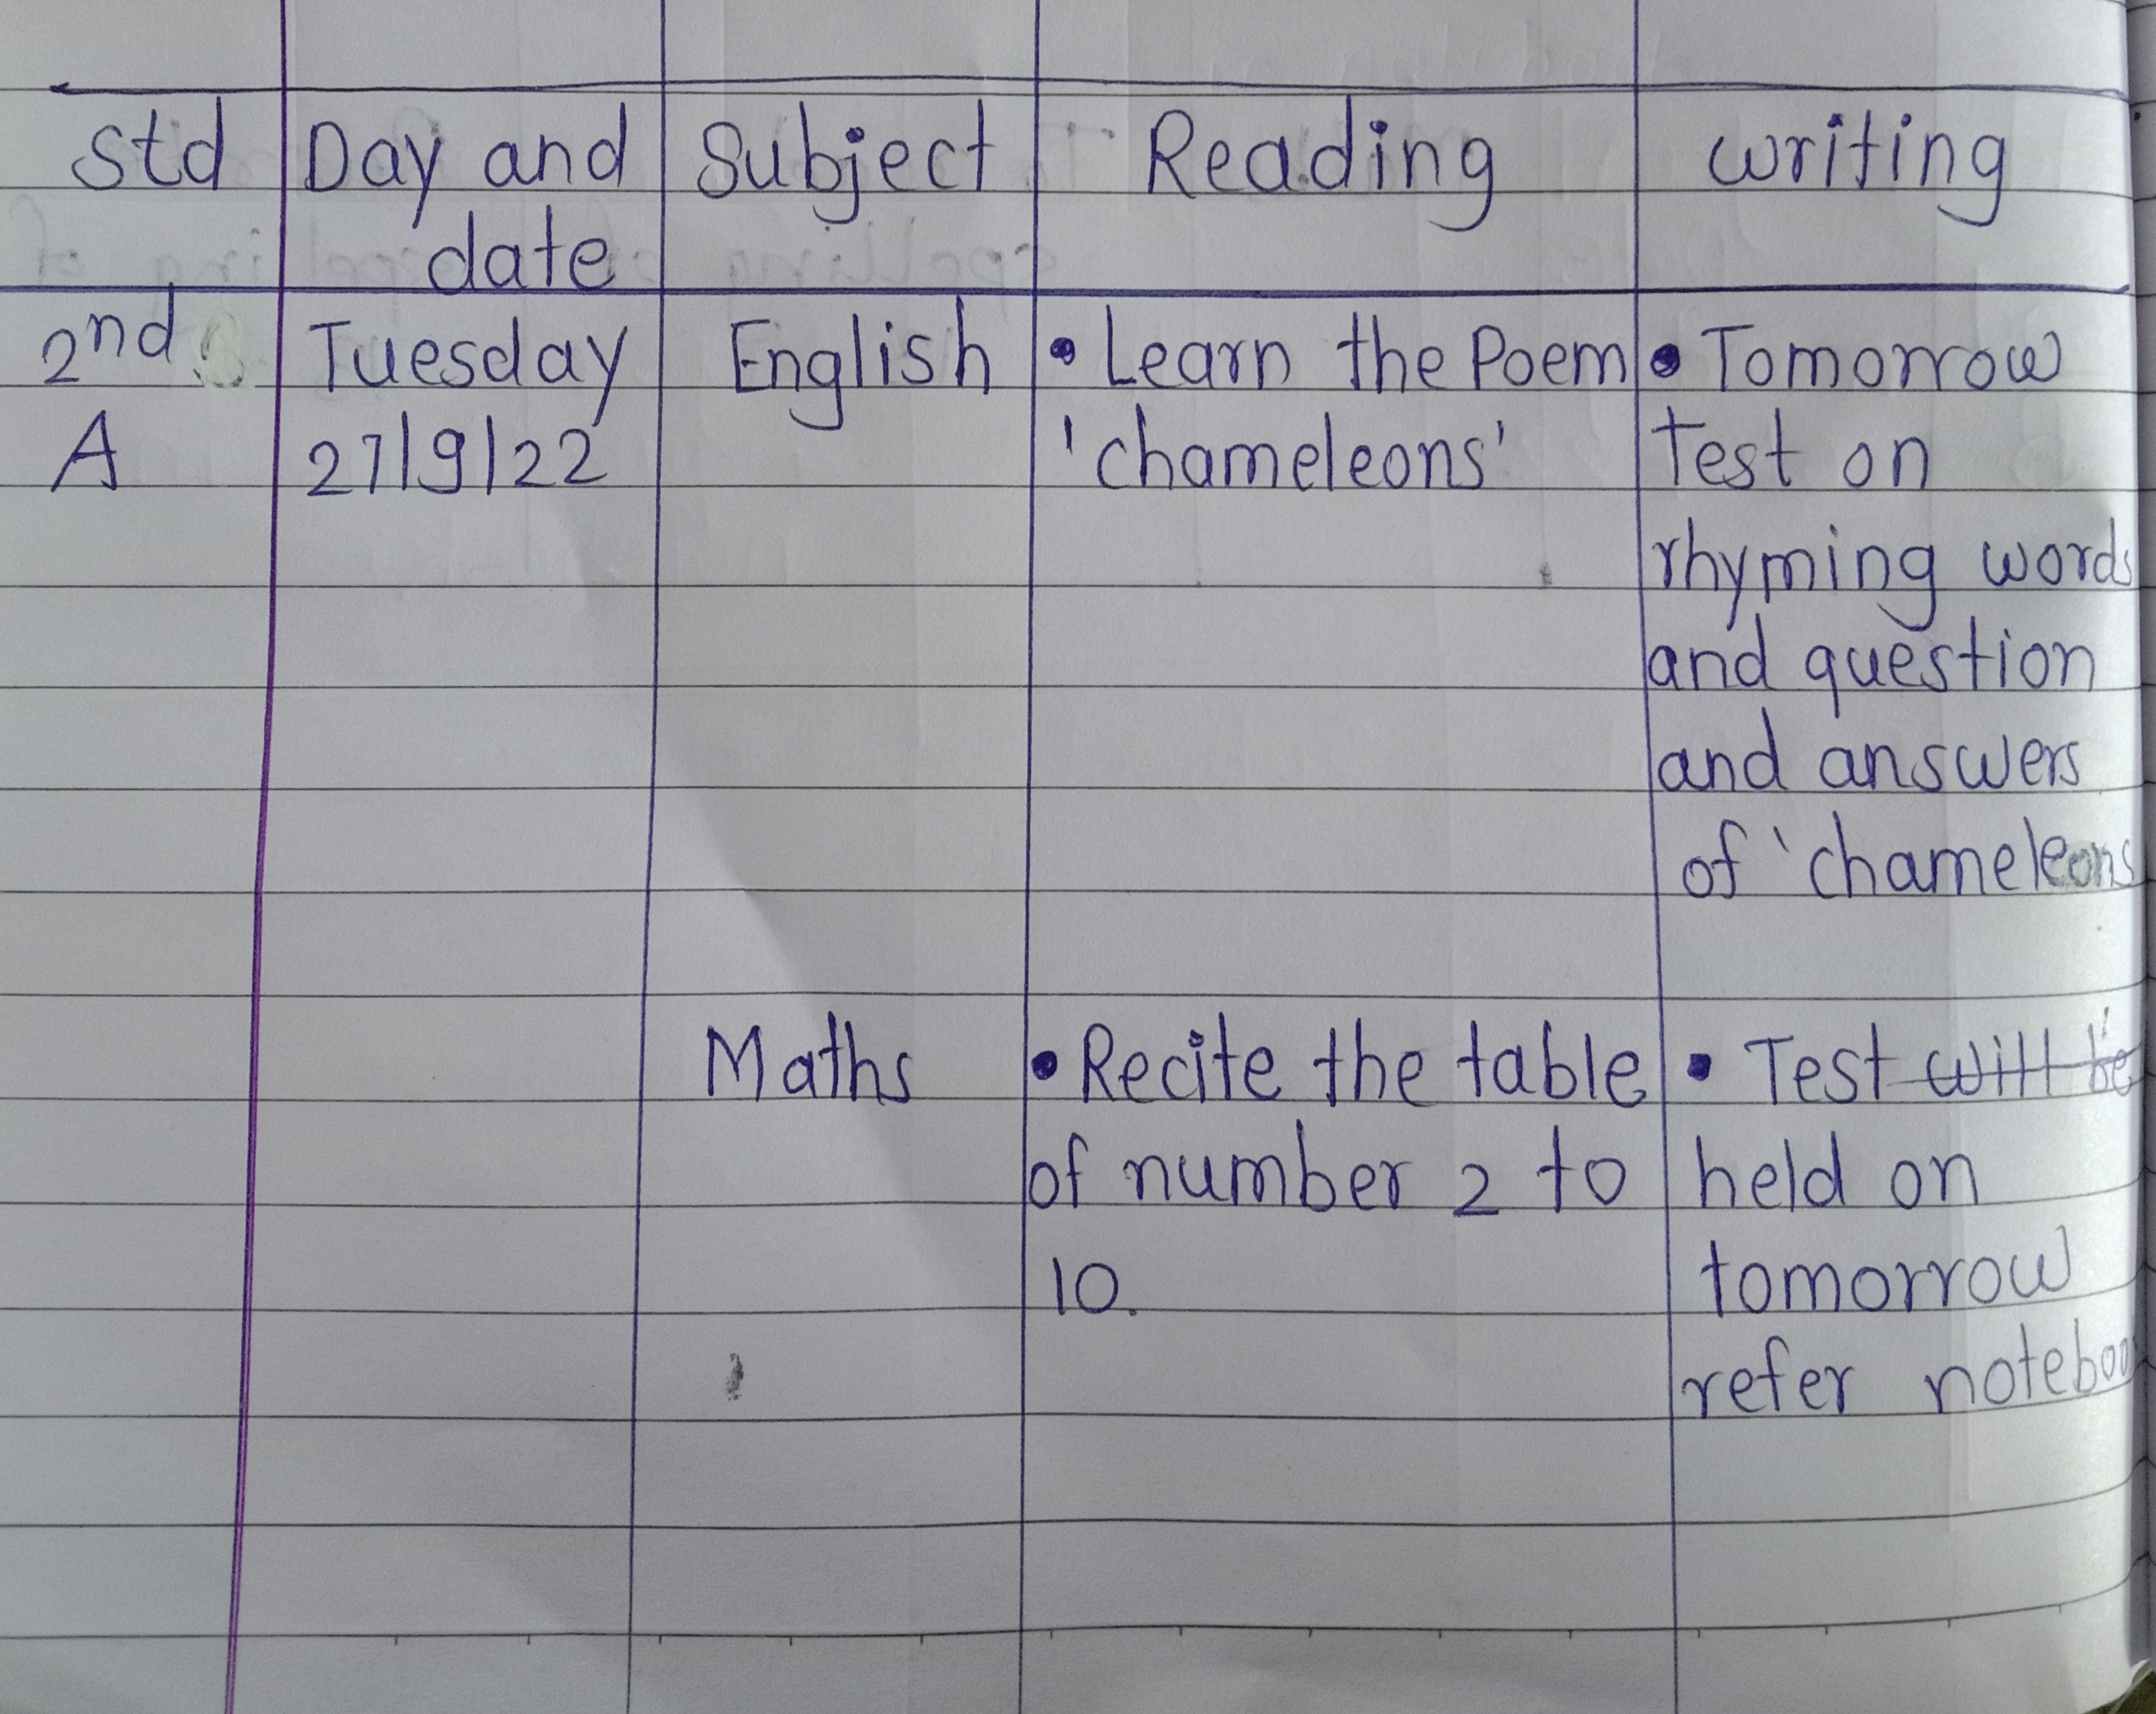 Std Day and date Subject Reading writing
2nd A
Tuesday
27/9/22
English
• Learn the Poem
'chameleons'
• Tomorrow
Test on
rhyming words
and question
and answers
of 'chameleons
Maths
• Recite the table
of number 2 to
10.
• Test will be
held on
tomorrow
refer noteboo